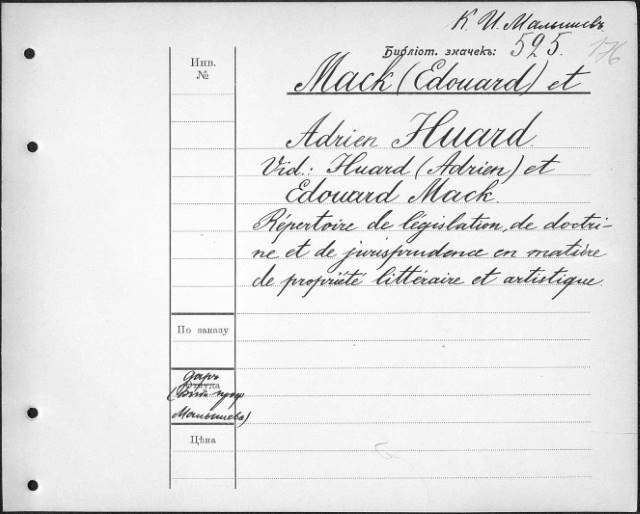 К. И. Малышевъ
Библіот. значекъ: 525.
176
Инв.
№
Mack (Edouard) et
Adrien Huard.
Vid.: Huard (Adrien) et
Edouard Mack.
Répertoire de législation, de doctri-
ne et de jurisprudence en matière
de propriété littéraire et artistique.
По заказу
даръ
Откуда
Малышева)
Цѣна